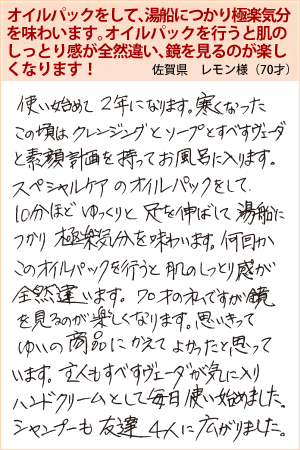 オイルパックをして、湯船につかり極楽気分
を味わいます。オイルパックを行うと肌の
しっとり感が全然違い、鏡を見るのが楽し
くなります！
佐賀県　レモン様（70才）
使い始めて2年になります。寒くなった
この頃はクレンジングとソープとすべすヴェーダ
と素顔計画を持ってお風呂に入ります。
スペシャルケアのオイルパックをして
10分ほどゆっくりと足を伸ばして湯船に
つかり極楽気分を味わいます。何日か
このオイルパックを行うと肌のしっとり感が
全然違います。70才の私ですが鏡
を見るのが楽しくなります。思いきって
ゆいの商品にかえてよかったと思って
います。主人もすべすヴェーダが気に入り
ハンドクリームとして毎日使い始めました。
シャンプーも友達4人に広がりました。